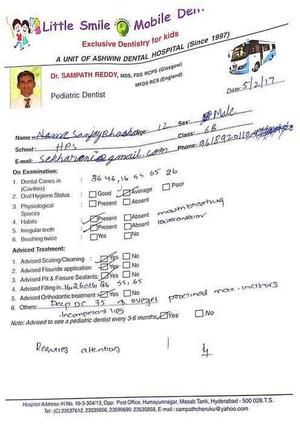 Little Smile Mobile Den
Exclusive Dentistry for kids
A UNIT OF ASHWINI DENTAL HOSPITAL (Since 1997)
Dr. SAMPATH REDDY, MDS, FDS RCPS (Glasgow)
MFDS RCS (England)
Pediatric Dentist
Date: 5/2/17
Name: 12 Sex: Male
School: HPS Class: 6B
E-mail: @gmail.com Phone:
On Examination:
1. Dental Caries in 36 46, 16 55 65 26
(Cavities)
2. Oral Hygiene Status Good Average Poor
3. Physiological Present Absent
Spaces
4. Habits Present Absent mouth breathing
5. Irregular teeth Present Absent
6. Brushing twice Yes No
Adviced Treatment:
1. Advised Scaling/Cleaning Yes No
2. Advised Fluoride application Yes No
3. Advised Pit & Fissure Sealants: Yes No
4. Advised Filling in. 16 26 46 36 55, 65
5. Advised Orthodontic treatment Yes No
6. Others: Deep DC 75 proclined max. incisors
incompetent lips
Note: Advised to see a pediatric dentist every 3-6 months. Yes No
Requires attention
Hospital Address-H.No. 10-3-304/13, Opp. Post Office, Humayunnagar, Masab Tank, Hyderabad - 500 028.T.S.
Tel: (C) 23537612, 23535656, 23590680, 23535858, E-mail: sampathcheruku@yahoo.com